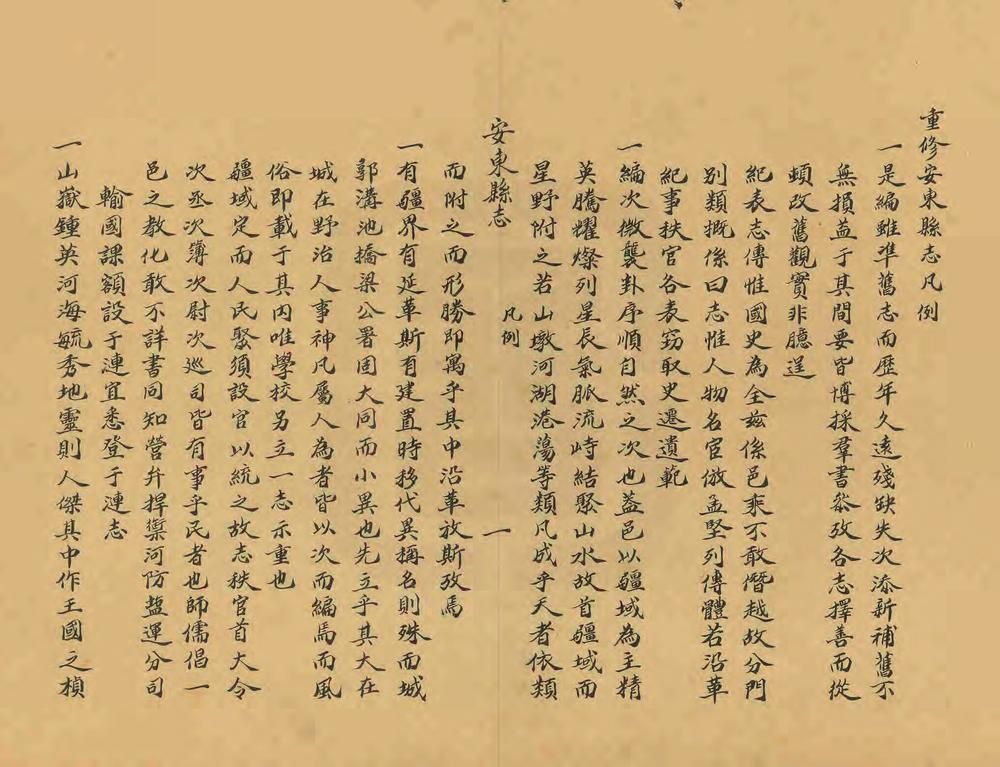 重修安東縣志凡例
一是編雖準舊志而歷年久遠殘缺失次添新補舊不
無損益于其間要皆博採羣書叅攷各志擇善而從
頓改舊觀實非臆逞
紀表志傳惟國史為全兹係邑乘不敢僭越故分門
別類概係曰志惟人物名宦倣孟堅列傳體若沿革
紀事秩官各表竊取史遷遺範
一編次微襲卦序順自然之次也葢邑以疆域為主精
英騰耀燦列星辰氣脈流峙結聚山水故首疆域而
星野附之若山墩河湖港蕩等類凡成乎天者依類
安東縣志
凡例
一
而附之而形勝即寓乎其中沿革放斯攷焉
一有疆界有延革斯有建置時移代異稱名則殊而城
郭溝池橋梁公署固大同而小異也先立乎其大在
城在野治人事神凡屬人為者皆以次而編焉而風
俗即載于其內唯學校另立一志示重也
疆域定而人民聚須設官以統之故志秩官首大令
次丞次簿次尉次巡司皆有事乎民者也師儒倡一
邑之教化敢不詳書同知營弁捍禦河防盐運分司
輸國課額設于漣宜悉登于漣志
一山嶽鍾英河海毓秀地靈則人傑其中作王國之楨